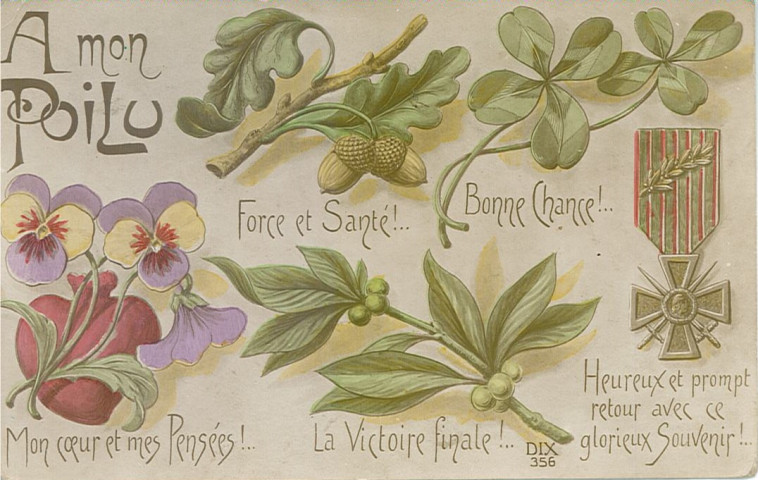 A mon
Poilu
Force et Santé!..
Bonne Chance!..
Mon cœur et mes Pensées!..
La Victoire finale!..
Heureux et prompt
retour avec ce
glorieux Souvenir!..
DIX
356